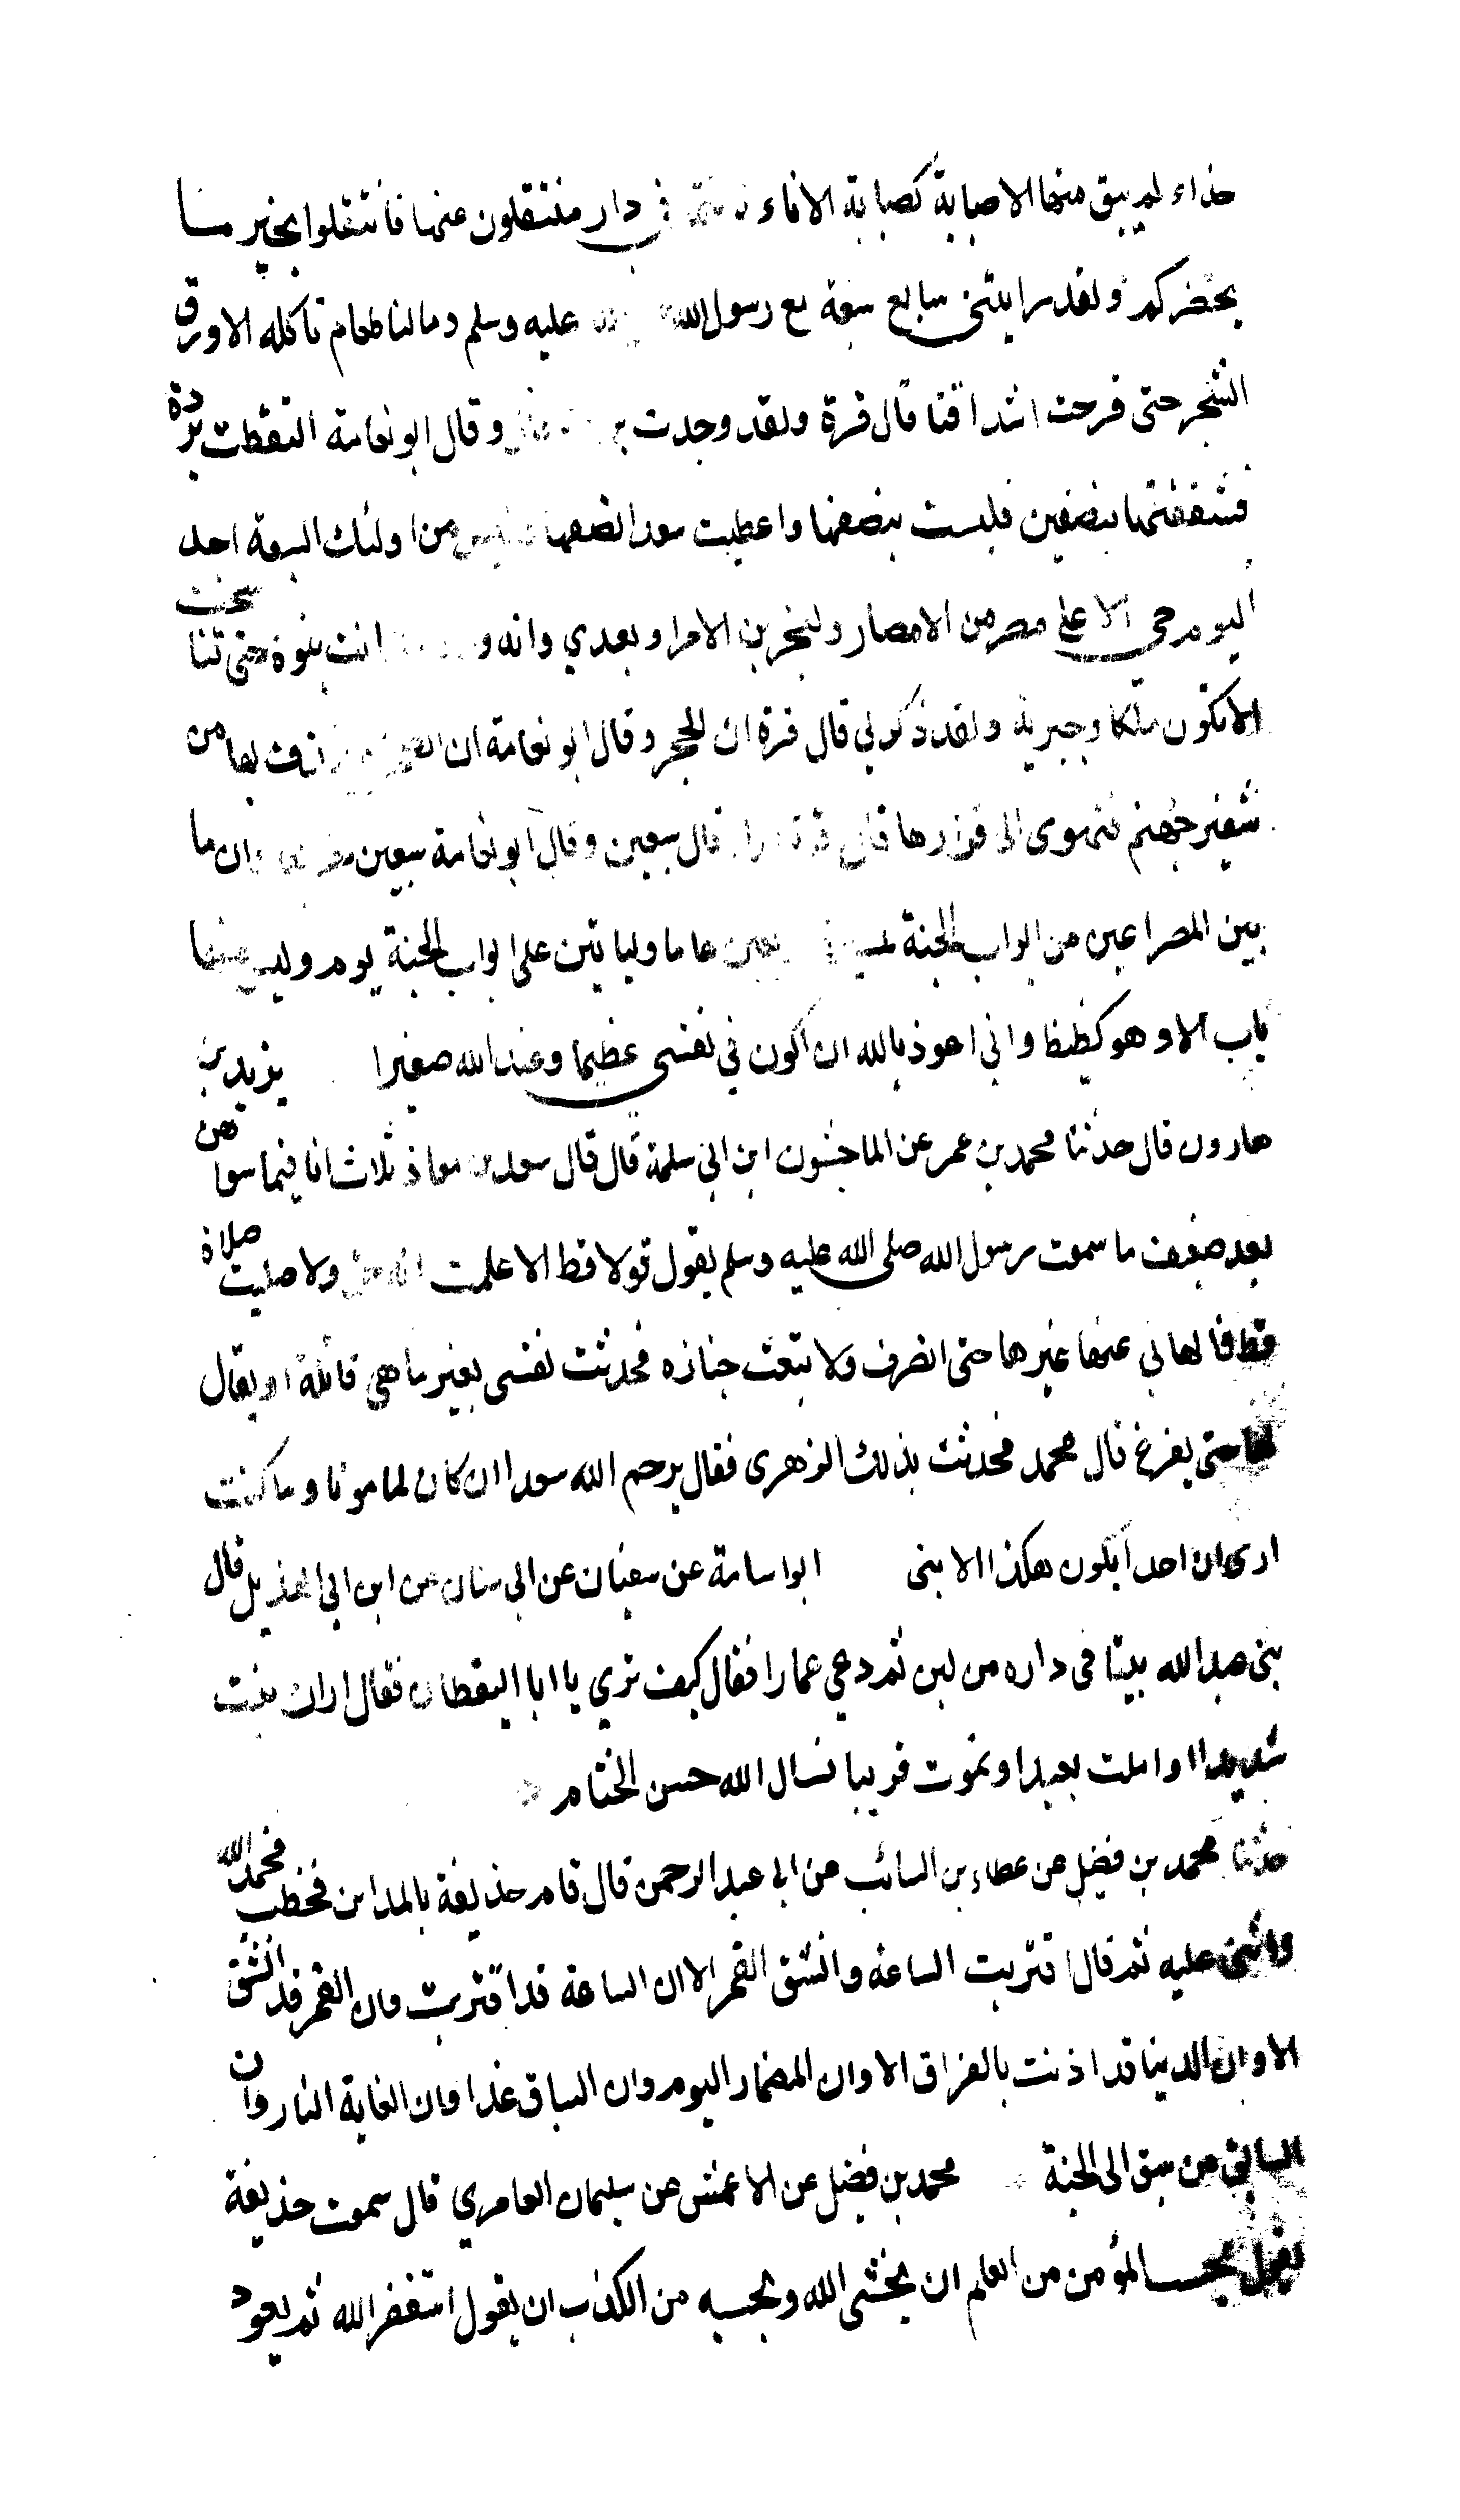 حذاء لم يبق منها الا صبابة كصبابة الاناء في دار منتقلون عنها فانتقلوا بخير ما
بحضركم ولقد رايتني سابع سبعة مع رسول الله عليه وسلم وما لنا طعام ناكله الا ورق
الشجر حتى قرحت اشداقنا قال قرة ولقد وجدت وقال ابو نعامة التقطت بردة
فشققتها بنصفين فلبست بنصفها واعطيت سعدا نصفها من اولئك السبعة احد
اليوم حي الا على مصر من الامصار ولتجربن الامرا بعدي وانه و نبوة حتى تناسخت
الا تكون ملكا وجبرية ولقد ذكر لي قال قرة ان الحجر وقال ابو نعامة ان الحجر لها من
شفير جهنم فتهوى الى قرارها قال قال سبعين وقال ابو نعامة سبعين وان ما
بين المصراعين من ابواب الجنة عاما ولياتين على ابواب الجنة يوم وليس منها
باب الا وهو كظيظ واني اعوذ بالله ان اكون في نفسي عظيما وعند الله صغيرا يزيد بن
هارون قال حدثنا محمد بن عمر عن الماجشون ابن ابي سلمة قال قال سعد بن معاذ ثلاث انا فيما سواهن
بعد ضعف ما سمعت رسول الله صلى الله عليه وسلم يقول قولا قط الا علمت انه حق ولا صليت صلاة
قط فالهاني عنها غيرها حتى انصرف ولا تبعت جنازه فحدثت نفسي بغير ما هي قائلة او يقال
لها حتى يفرغ قال محمد فحدثت بذلك الزهرى فقال يرحم الله سعدا ان كان لمامونا وما كنت
ارى ان احدا يكون هكذا الا نبى ابو اسامة عن سفيان عن ابي سنان عن ابن ابي الهذيل قال
بنى عبد الله بيتا فى داره من لبن ثم دعي عمارا فقال كيف ترى يا ابا اليقظان فقال اراك بنيت
شديدا واملت بعيدا وتموت قريبا نسال الله حسن الختام
حدثنا محمد بن فضيل عن عطاء بن السائب عن ابي عبد الرحمن قال قام حذيفة بالمداين فخطب فحمد الله
واثنى عليه ثم قال اقتربت الساعة وانشق القمر الا ان الساعة قد اقتربت وان القمر قد انشق
الا وان الدنيا قد اذنت بالفراق الا وان المضمار اليوم وان السباق غدا وان الغاية النار وان
السابق من سبق الى الجنة محمد بن فضيل عن الاعمش عن سليمان العامري قال سمعت حذيفة
يقول بحسب المؤمن من العلم ان يخشى الله وبحسبه من الكذب ان يقول استغفر الله ثم يعود